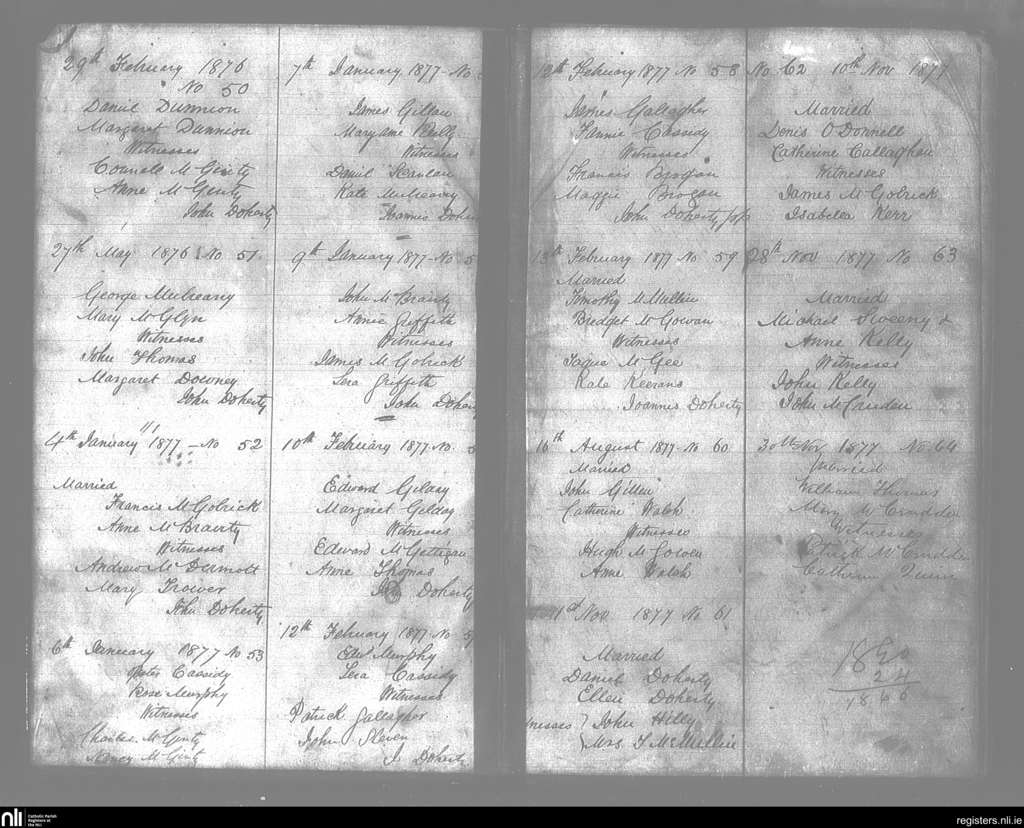 29th February 1876
No 50
Daniel Dunnion
Margaret Dunnion
Witnesses
McGinty
Anne McGinty
John Doherty
27th May 1876 No 51.
George Mulreany
Mary McGlyn
Witnesses
John Thomas
Margaret Downey
John Doherty
4th January 1877 - No 52
Married
Francis McGolrick
Anne McBrairty
Witnesses
Andrew McDermott
Mary Trower
John Doherty
6th January 1877 No 53
Peter Cassidy
Rose Murphy
Witnesses
Charles McGinty
Nancy McGinty
7th January 1877 - No
James Gillan
Maryanne Reilly
Witnesses
Daniel Kanlan
Kate Mulreany
9th January 1877 - No 5
John McBrairty
Annie Griffith
Witnesses
James McGolrick
Griffith
John Doher
10th February 1877 - No. 5
Edward Gilday
Margaret Gilday
Witnesses
Edward McGettigan
Anne Thomas
John Doherty
12th February 1877 - No 5
Edwd Murphy
Cassidy
Witnesses
Patrick Gallagher
John
J Doherty
12th February 1877 No 58
James Gallagher
Fannie Cassidy
Witnesses
Francis Brogan
Maggie Brogan
John Doherty
13th February 1877 No 59
Married
Timothy McMullin
Bridget McGowan
Witnesses
McGee
Kate Keerans
Joannis Doherty
16th August 1877 - No 60
Married
John Gillen
Catherine Walsh
Witnesses
Hugh McGowen
Anne Walsh
1st Nov 1877 No 61
Married
Daniel Doherty
Ellen Doherty
nesses } John Hilly
} Mrs. McMullin
No 62 10th Nov 1877
Married
Denis O'Donnell
Catherine Callaghan
Witnesses
James McGolrick
Isabella Kerr
28th Nov 1877 No 63
Married
Michael Sweeny &
Anne Kelly
Witnesses
John Kelly
John McCrudden
30th Nov 1877 No 64
Married
William Thomas
Mary McCrudden
Witnesses
Patrick McCrudden
Catherine Quinn
1890
24
1866
nli
Catholic Parish
Registers at
the NLI
registers.nli.ie